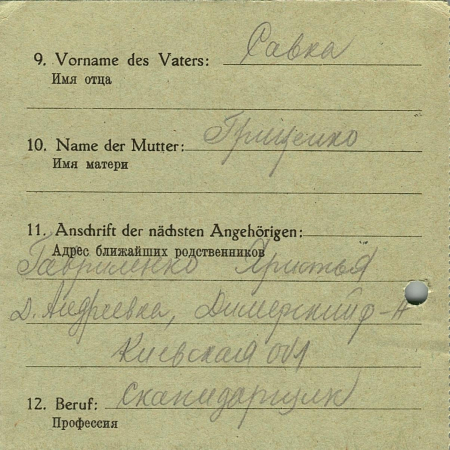 9. Vorname des Vaters: Савка
Имя отца
10. Name der Mutter: Грищенко
Имя матери
11. Anschrift der nächsten Angehörigen:
Адрес ближайших родственников
Гавриленко Христья
д. Андреевка, Димерский р-н
Киевская обл
12. Beruf:
Профессия